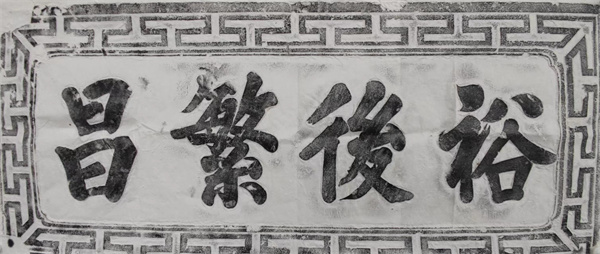 裕後繁昌